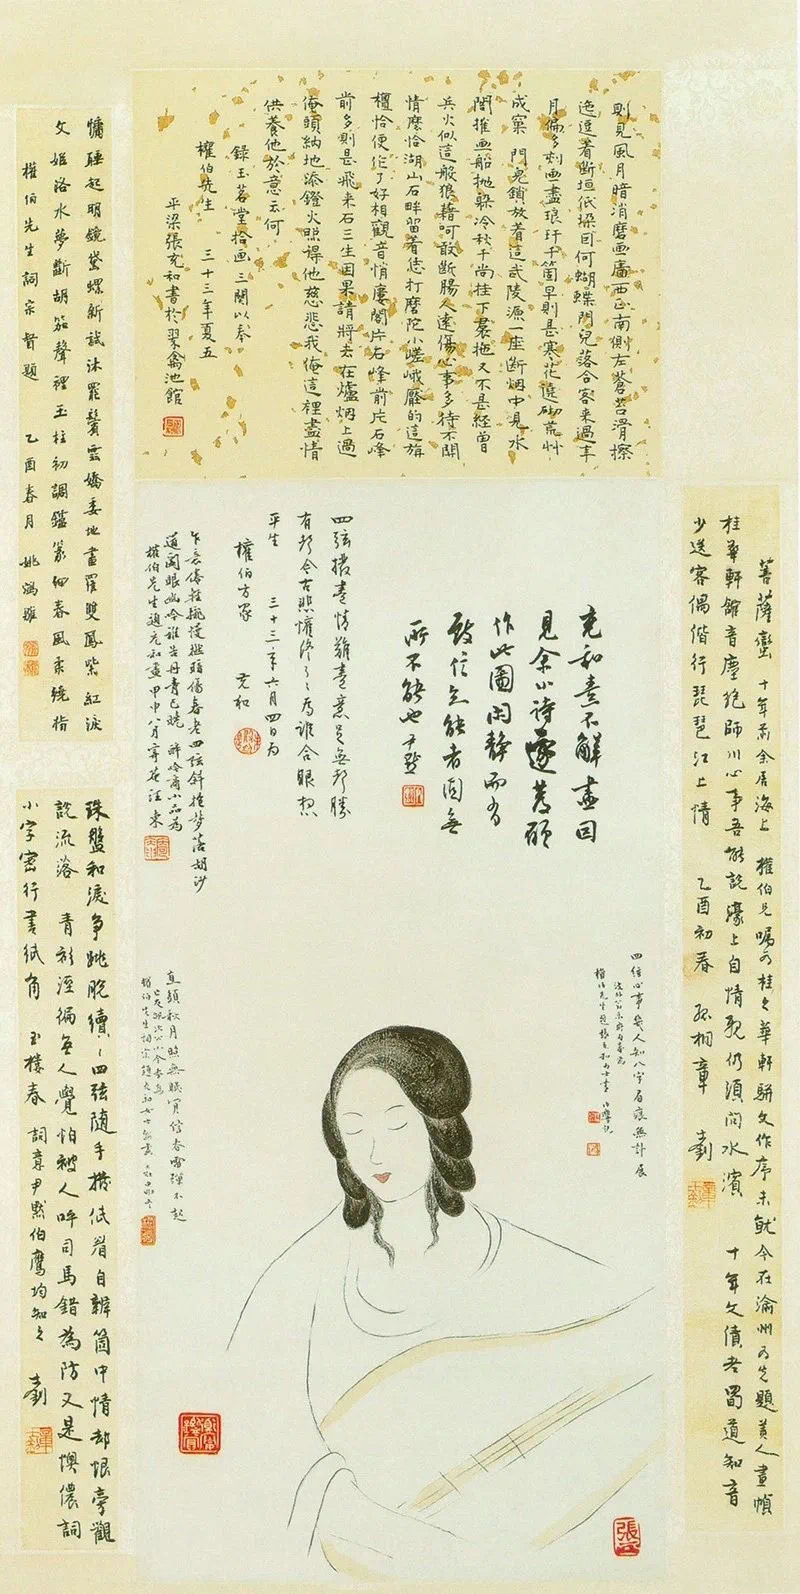 則見風月暗消磨画廧西正南側左蒼苔滑擦
迤逗着斷垣低垜因何蝴蝶門兒落合客来過年
月偏多刻画盡琅玕千箇早則是寒花遶砌荒艸
成窠 門兒鎖放着這武陵源一座斷烟中見水
閣摧画船抛躲冷秋千尚挂下裙拖又不是經曾
兵火似這般狼藉呵敢斷腸人遠傷心事多待不關
情麼恰湖山石畔留着恁打磨陀小嵯峨壓的這旃
檀恰便作了好相觀音悄廔閣片石峰前片石峰
前多則是飛来石三生因果請將去在爐烟上過
俺頭納地添鐙火照得他慈悲我俺這裡盡情
供養他於意云何
錄玉茗堂拾画三闋以奉
權伯先生 三十三年夏五
平梁張充和書於翠禽池館
慵睡起明鏡黛螺新試沐罷鬢雲嬌委地畫羅雙鳳紫 紅淚
文姬洛水夢斷胡笳聲裡玉柱初調鑪篆細春風柔繞指
權伯先生詞宗督題 乙酉春月 姚鵷雛
充和素不解畫因
見余小詩遂發願
作此圖閑静而有
致信知能者固無
所不能也 尹默
四弦撥盡情難盡意足無聲勝
有聲今古悲懽終了了爲誰合眼想
平生 三十三年六月四日爲
權伯方家 充和
乍訝倦粧撚慢撚
傷春老四弦斜抱夢落胡沙
道閑眼幽吟誰共丹青已曉 醉吟商小品為
權伯先生題充和画甲申八月寄菴汪東
菩薩蠻 十年前余居海上 權伯兄囑為桂之華軒駢文作序未就今在渝州為先題美人畫幀
桂華軒館音塵絶師川心事吾能説濠上自情親仍須問水濱 十年文債老蜀道知音
少送客偶偕行琵琶江上情 乙酉初春 孤桐章 士釗
珠盤和淚爭跳脱續續四弦随手撥低眉自辦箇中情却恨旁觀
説流落 青衫溼徧無人覺怕被人呼司馬錯為防又是懊儂詞
小字密行書纸角 玉樓春 詞意尹默伯鷹均知之 士釗
四弦心事幾人知八字眉痕無計展
權伯先生題